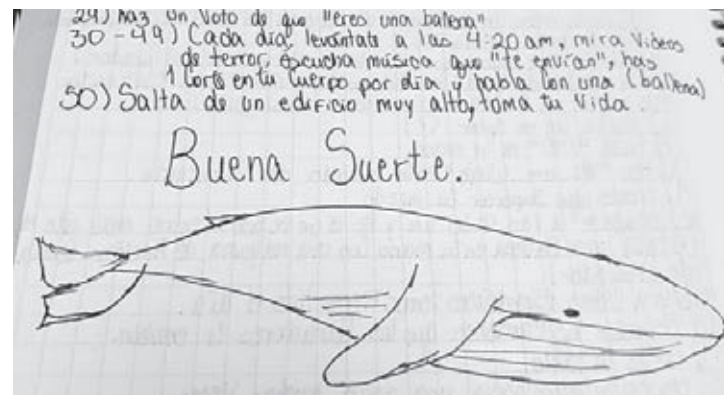 29) haz un voto de que "eres una ballena"
30-49) Cada día, levántate a las 4:20 am, mira videos
de terror, escucha música que "te envían", has
1 corte en tu cuerpo por día y habla con una (ballena)
50) Salta de un edificio muy alto, toma tu vida.
Buena Suerte.